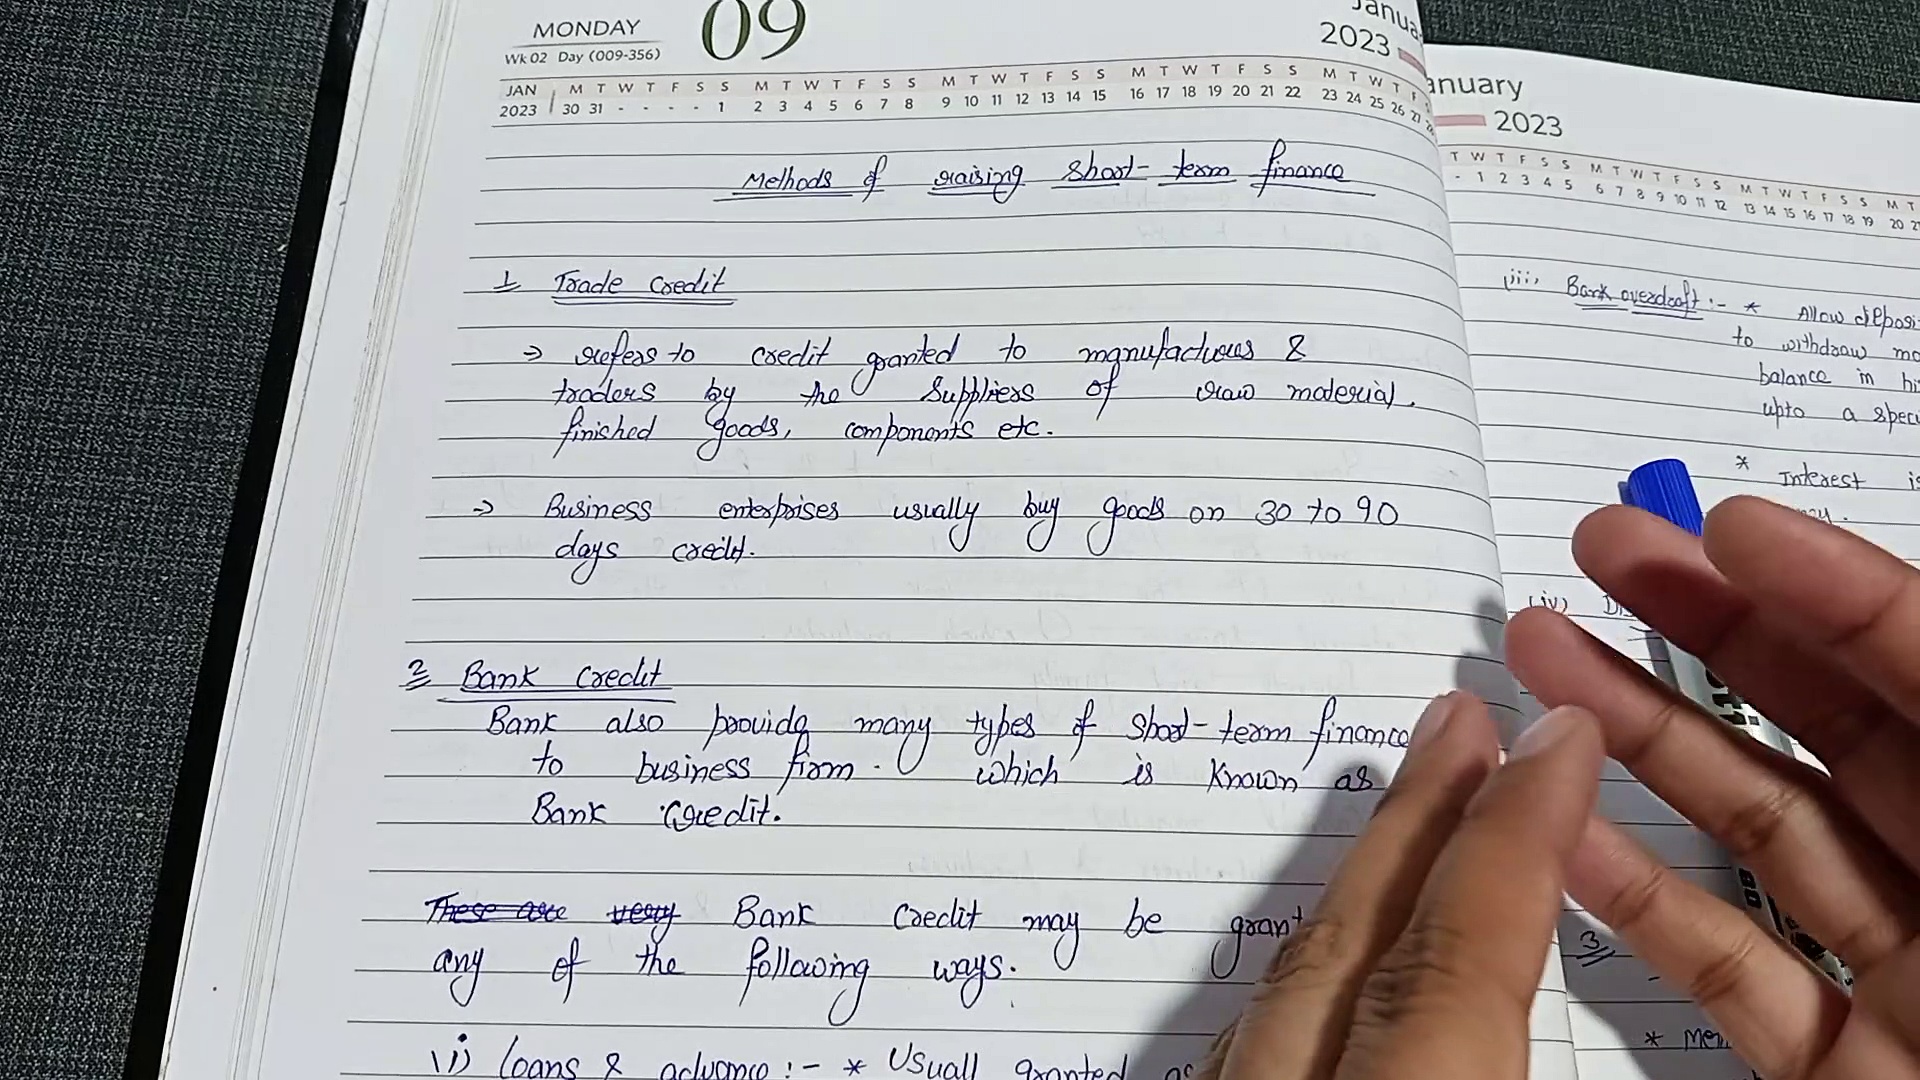 MONDAY
09
Wk 02 Day (009-356)
2023
JAN M T W T F S S M T W T F S S M T W T F S S M T W T F S S M T W T F
2023 30 31 - - - - 1 2 3 4 5 6 7 8 9 10 11 12 13 14 15 16 17 18 19 20 21 22 23 24 25 26 27 28
Methods of raising Short-term finance
1 Trade Credit
→ refers to credit granted to manufactures &
traders by the Suppliers of raw material.
finished goods, components etc.
→ Business enterprises usually buy goods on 30 to 90
days credit.
2 Bank Credit
Bank also provide many types of short-term finance
to business firm. which is known as
Bank Credit.
These are very Bank Credit may be grant
any of the following ways.
(i) loans & advance :- * Usuall granted as
anuary
2023
T W T F S S M T W T F S S M T W T F S S M T
- 1 2 3 4 5 6 7 8 9 10 11 12 13 14 15 16 17 18 19 20 21
(iii) Bank overdraft :- * Allow deposi
to withdraw mo
balance in hi
upto a spec
* Interest is
(iv) Dis
3
* Mer